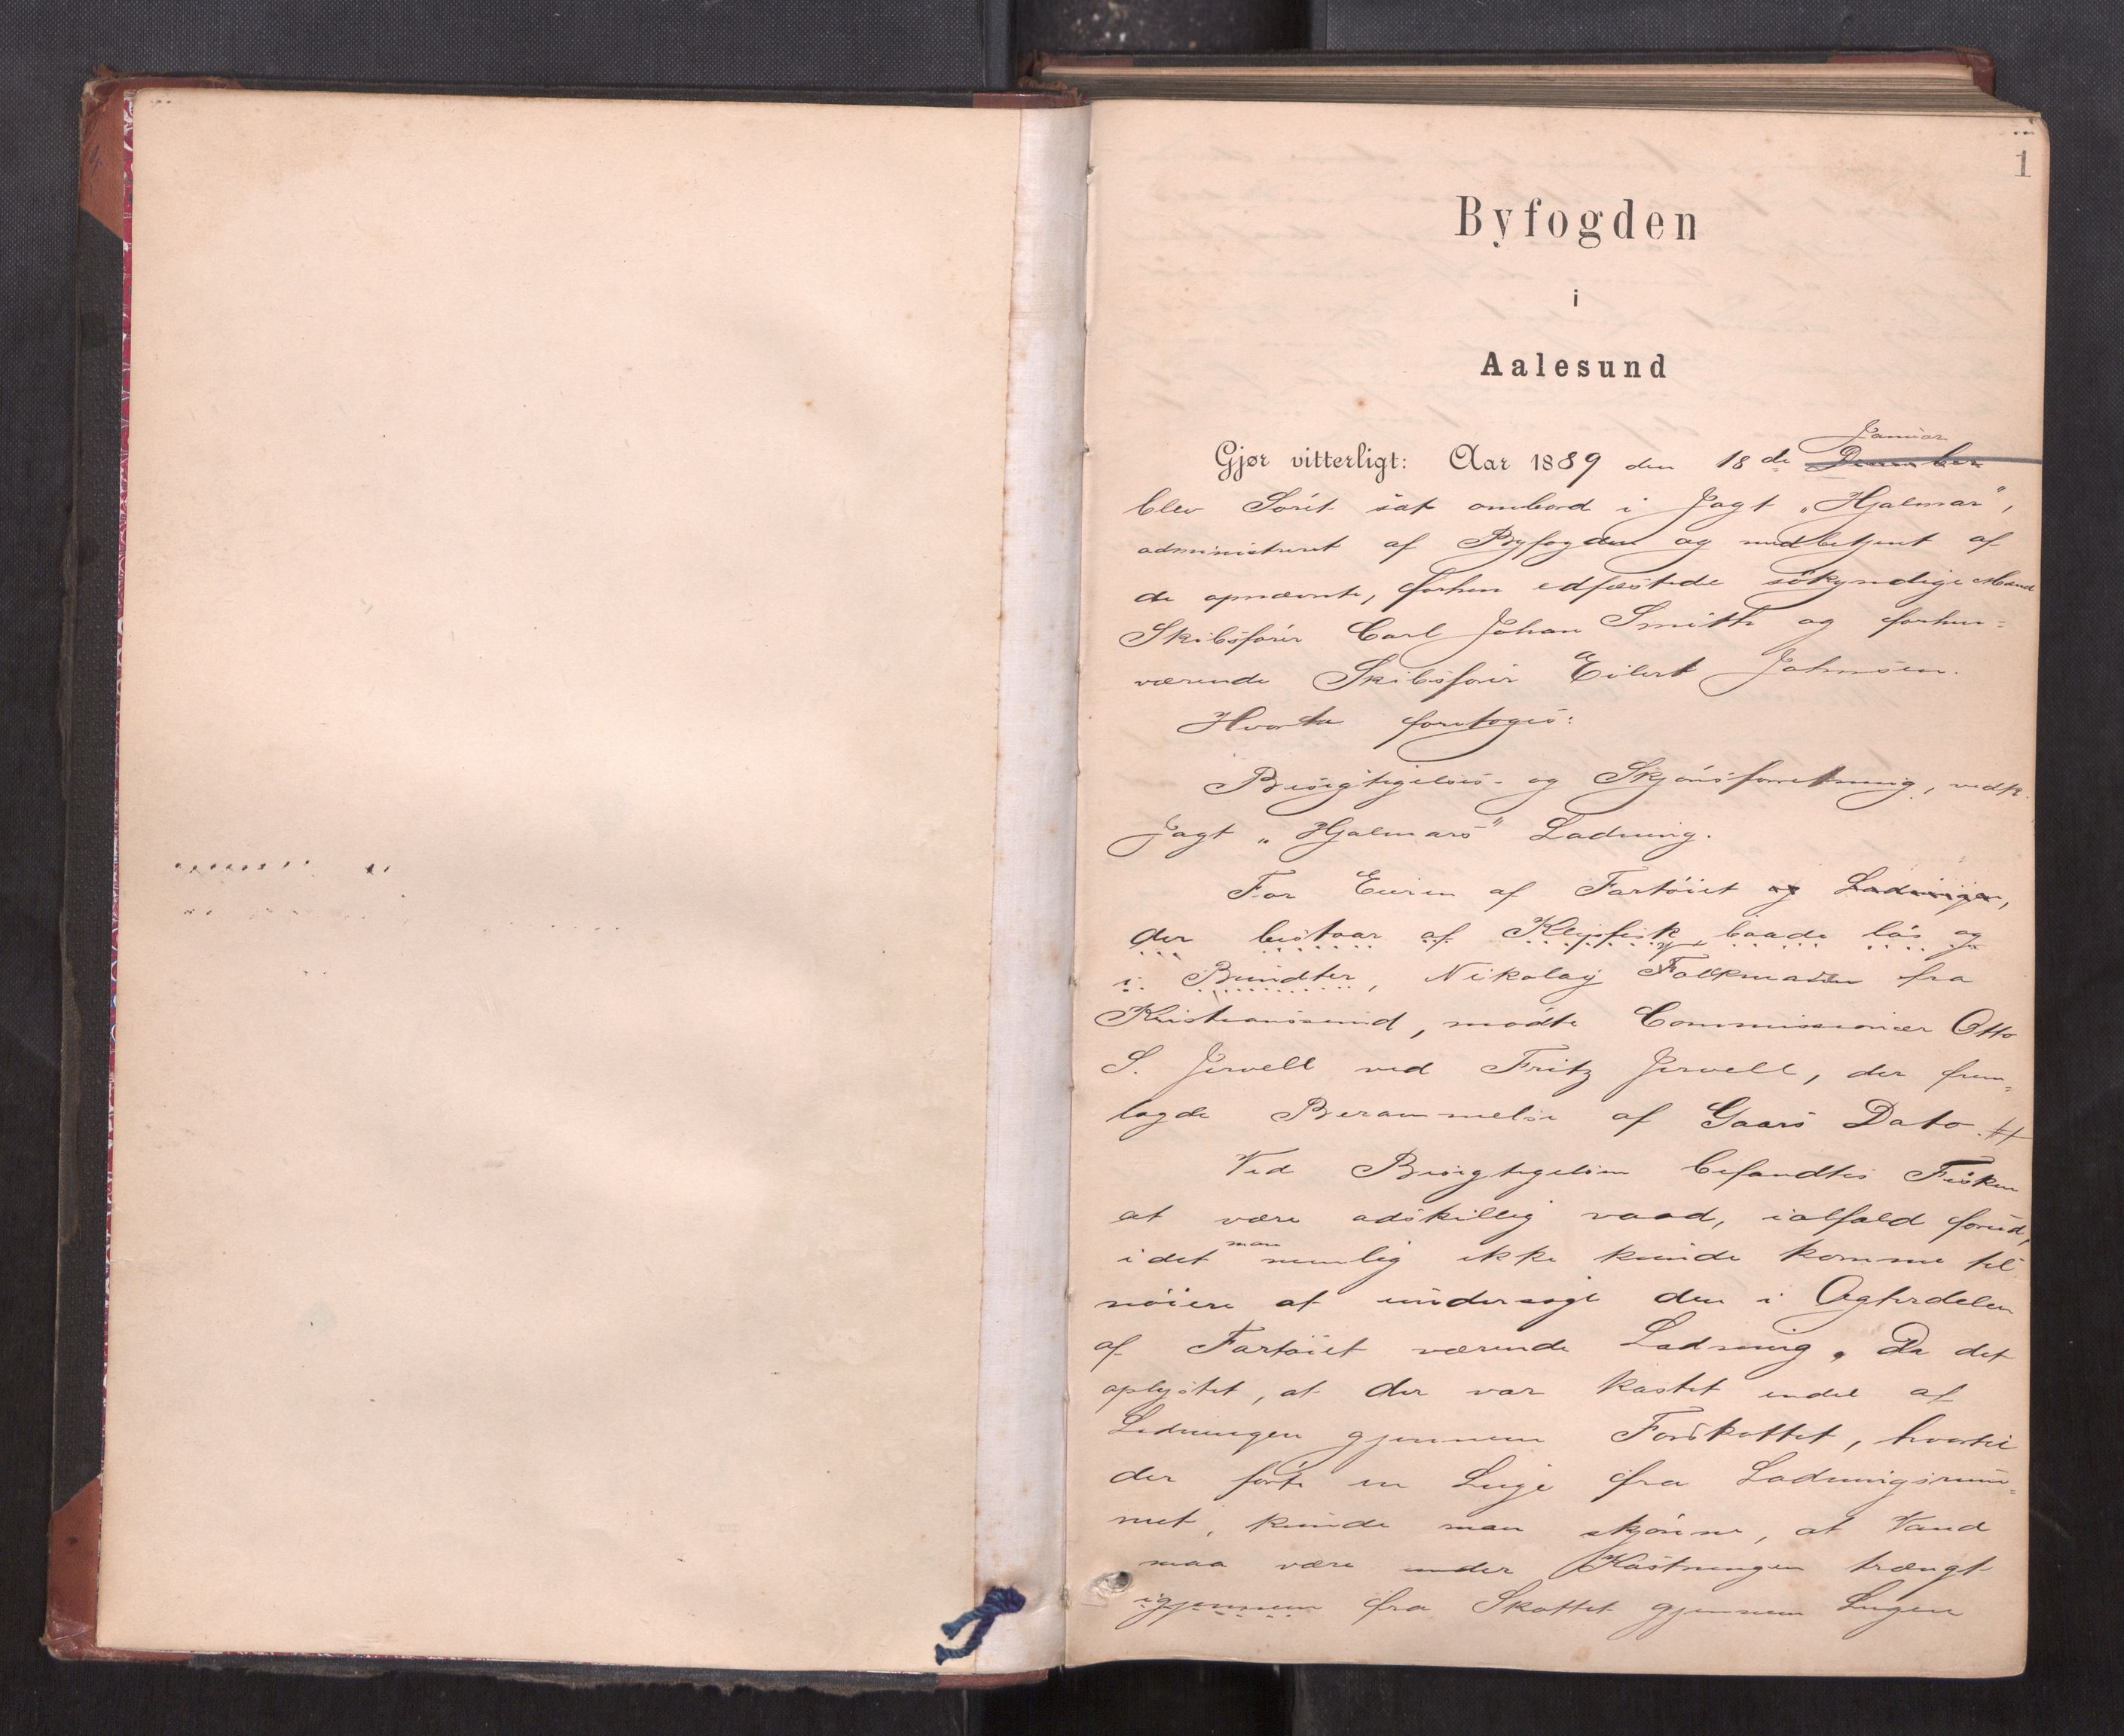 1
Byfogden
i
Aalesund
Januar
Gjør vitterligt: Aar 1889 den 18de December
blev Sørét sat ombord i Jagt „Hjalmar",
administreret af Byfogden og medbetjent af
de opnævnte, forhen edfæstede søkyndige Mænd
Skibsfører Carl Johan Smith og forhen=
værende Skibsfører Eilert Johnsen.
Hvorda foretoges:
Besigtigelses- og Skjønsforretning, vedk.
Jagt „Hjalmars" Ladning.
For Eieren af Fartøiet og Ladningen,
der bestaar af Klipfisk baade løs og
i Bundter, Nikolay Falkmann fra
Kristianssund, mødte Commissionær Otto
S. Jervell ved Fritz Jervell, der frem=
lagde Berammelse af Gaars Dato #
Ved Besigtigelsen befandtes Fisken
at være adskillig vaad, ialfald forud,
idet man nemlig ikke kunde komme til
nøiere at undersøge den i Agterdelen
af Fartøiet værende Ladning. Da det
oplystet, at der var kastet endel af
Ladningen gjennem Forskottet, hvortil
der førte en Luge fra Ladningsrum=
met, kunde man skjønne, at Vand
maa være under Kastningen trængt
igjennem fra Skottet gjennem Lugen